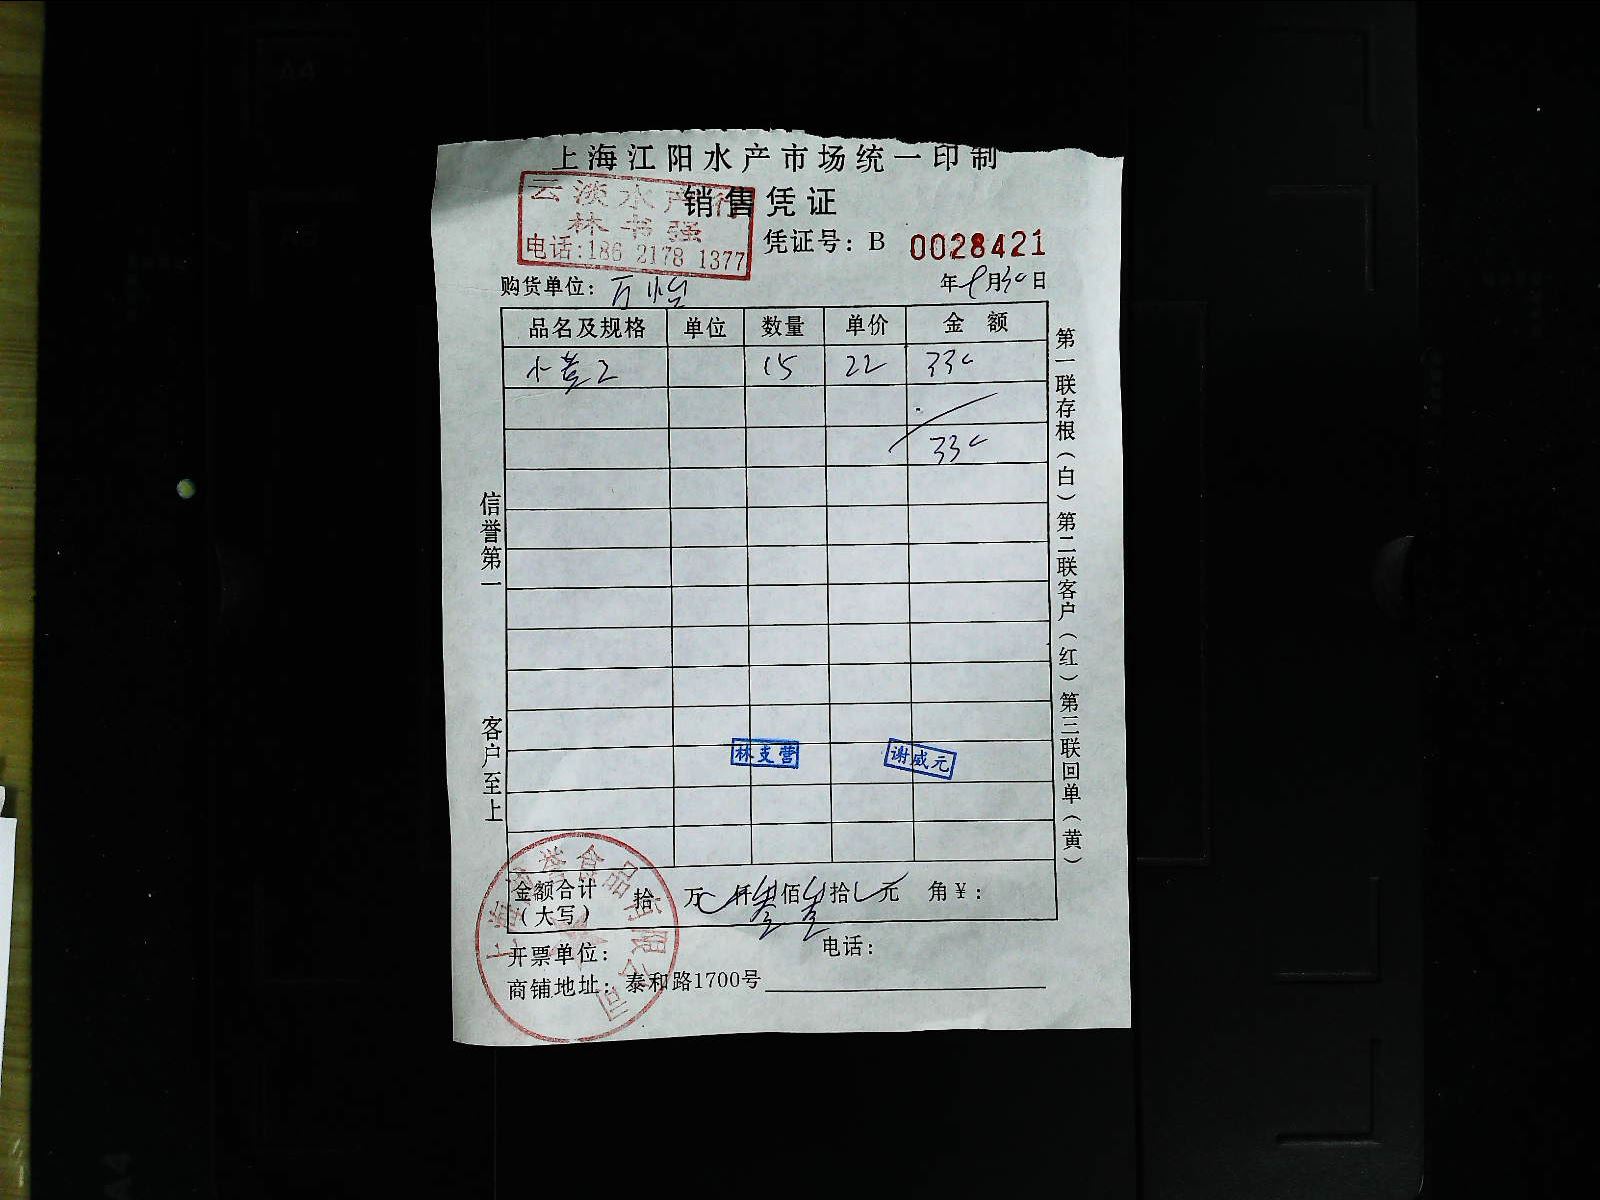 上海江阳水产市场统一印制
销售凭证
云淡水产行
林书强
电话:186 2178 1377
凭证号：B 0028421
购货单位：万怡
年9月30日
品名及规格 单位 数量 单价 金额
小黄 15 22 330
330
信誉第一
客户至上
第一联存根（白）第二联客户（红）第三联回单（黄）
林支营
谢威元
金额合计（大写） 拾 万 仟叁佰叁拾 元 角¥：
开票单位：
电话：
商铺地址：泰和路1700号
誉食品有限公司